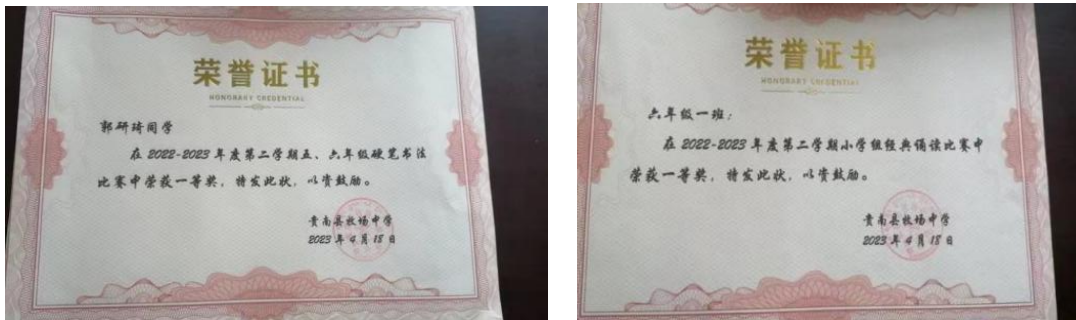 荣誉证书
HONORARY CREDENTIAL
郭研琦同学
在 2022-2023 年度第二学期五、六年级硬笔书法
比赛中荣获一等奖，特发此状，以资鼓励。
贵南县牧场中学
2023 年 4 月 18 日
荣誉证书
HONORARY CREDENTIAL
六年级一班：
在 2022-2023 年度第二学期小学组经典诵读比赛中
荣获一等奖，特发此状，以资鼓励。
贵南县牧场中学
2023 年 4 月 18 日